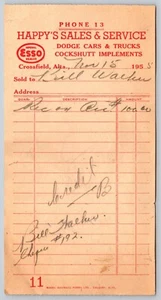 PHONE 13
HAPPY'S SALES & SERVICE
Esso
DODGE CARS & TRUCKS
COCKSHUTT IMPLEMENTS
Crossfield, Alta., Nov 15 1955
Sold to Bill Walker
Address
Rec on Acct $100.00
Credit
B
Bill Walker
#192.
11